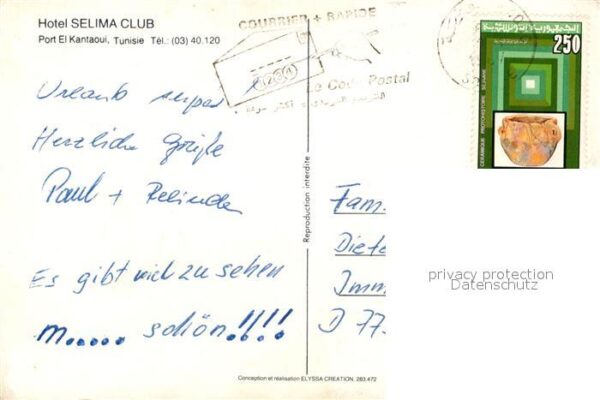 Hotel SELIMA CLUB
Port El Kantaoui, Tunisie Tél.: (03) 40.120
COURRIER + RAPIDE
Le Code Postal
250
CERAMIQUE PROTOHISTOIRE SEJNANE
Urlaub super
Herzliche Grüße
Paul + Belinda
Es gibt viel zu sehen
m..... schön!!!!
Reproduction interdite
Fam.
Diete
Imm
D 77
privacy protection
Datenschutz
Conception et réalisation ELYSSA CREATION. 283.472